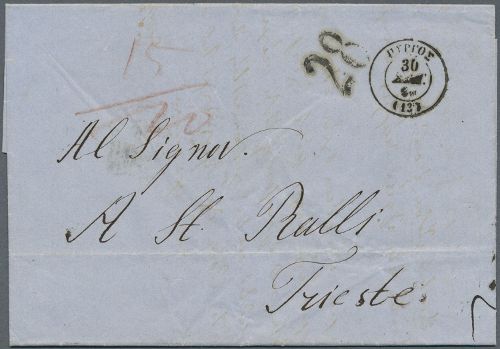 15
70
28
ΠΥΡΓΟΣ
30
(13)
Al Signor.
A St. Ralli
Trieste.